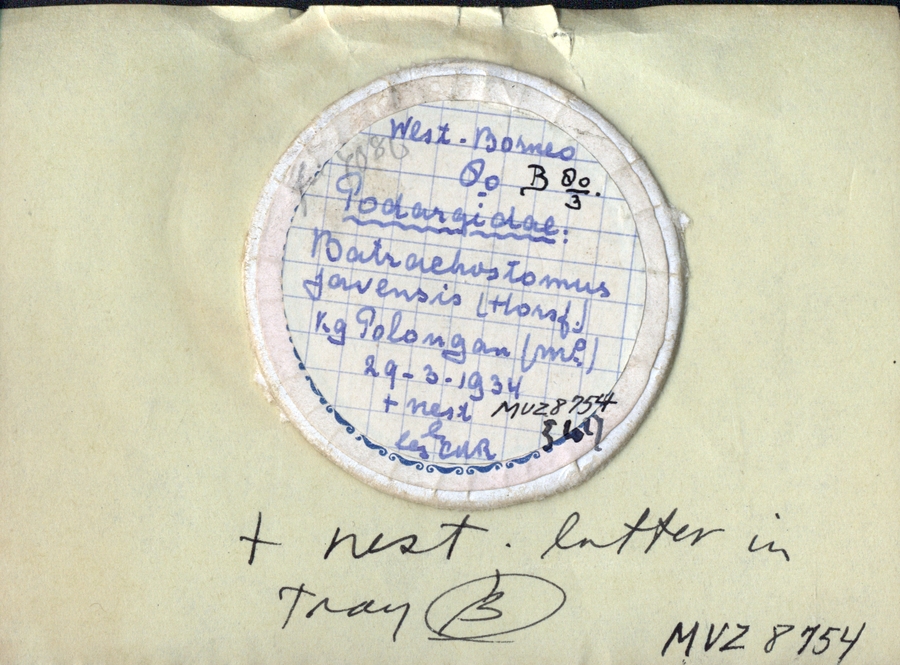 West. Borneo
Oo B Oo/3.
Podargidae:
Batrachostomus
javensis (Horsf.)
Kg Polongan (mp.)
29-3-1934
+ nest
MVZ 8754
leg
+ nest. latter in
Tray B
MVZ 8754